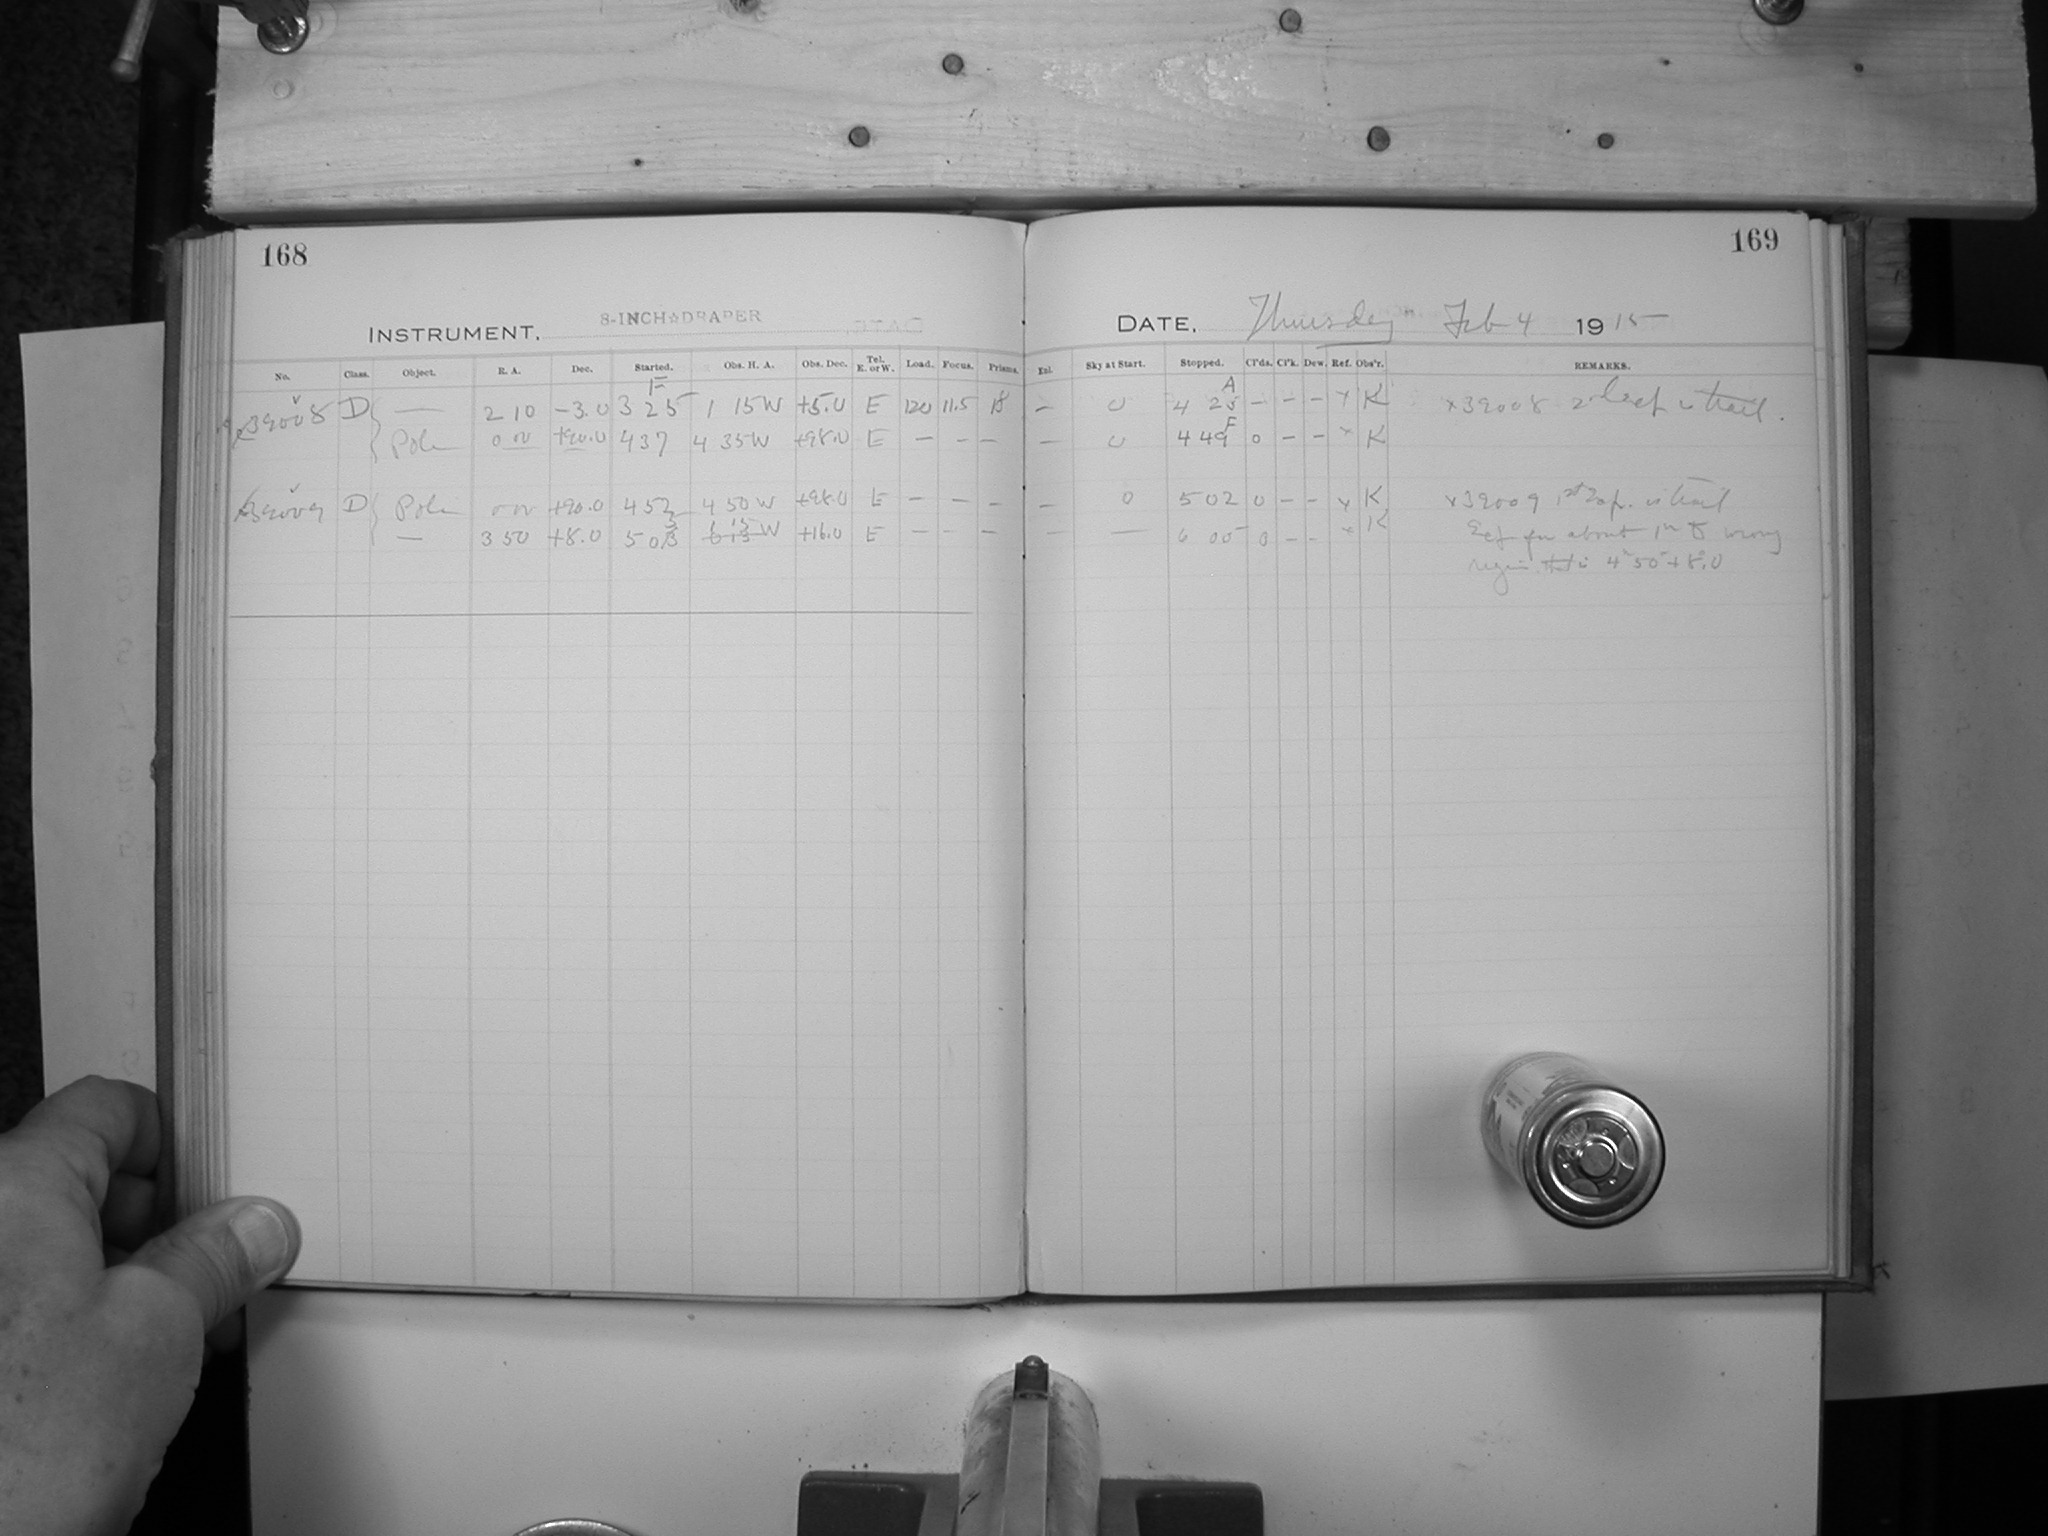 168
169
INSTRUMENT, 8-INCH DRAPER
DATE, Thursday Feb 4 1915
No. Class. Object. R. A. Dec. Started. Obs. H. A. Obs. Dec. Tel. E. or W. Load. Focus. Prisms. Enl. Sky at Start. Stopped. Cl'ds. Cl'k. Dew. Ref. Obs'r. REMARKS.
F A
x39008 D { — 2 10 -3.0 3 25 1 15 W +5.0 E 120 11.5 — 0 4 25 - - - x K x39008 2d exp is trail.
Pole 0 00 +90.0 4 37 4 35 W +98.0 E — — — — 0 4 49 F 0 - - x K
x39009 D { Pole 0 00 +90.0 4 52 4 50 W +98.0 E — — — — 0 5 02 0 - - x K x39009 1st exp. is trail
— 3 50 +8.0 5 03 W +16.0 E — — — — — 6 05 0 - - x K about 1m wrong
4h 50 +8.0